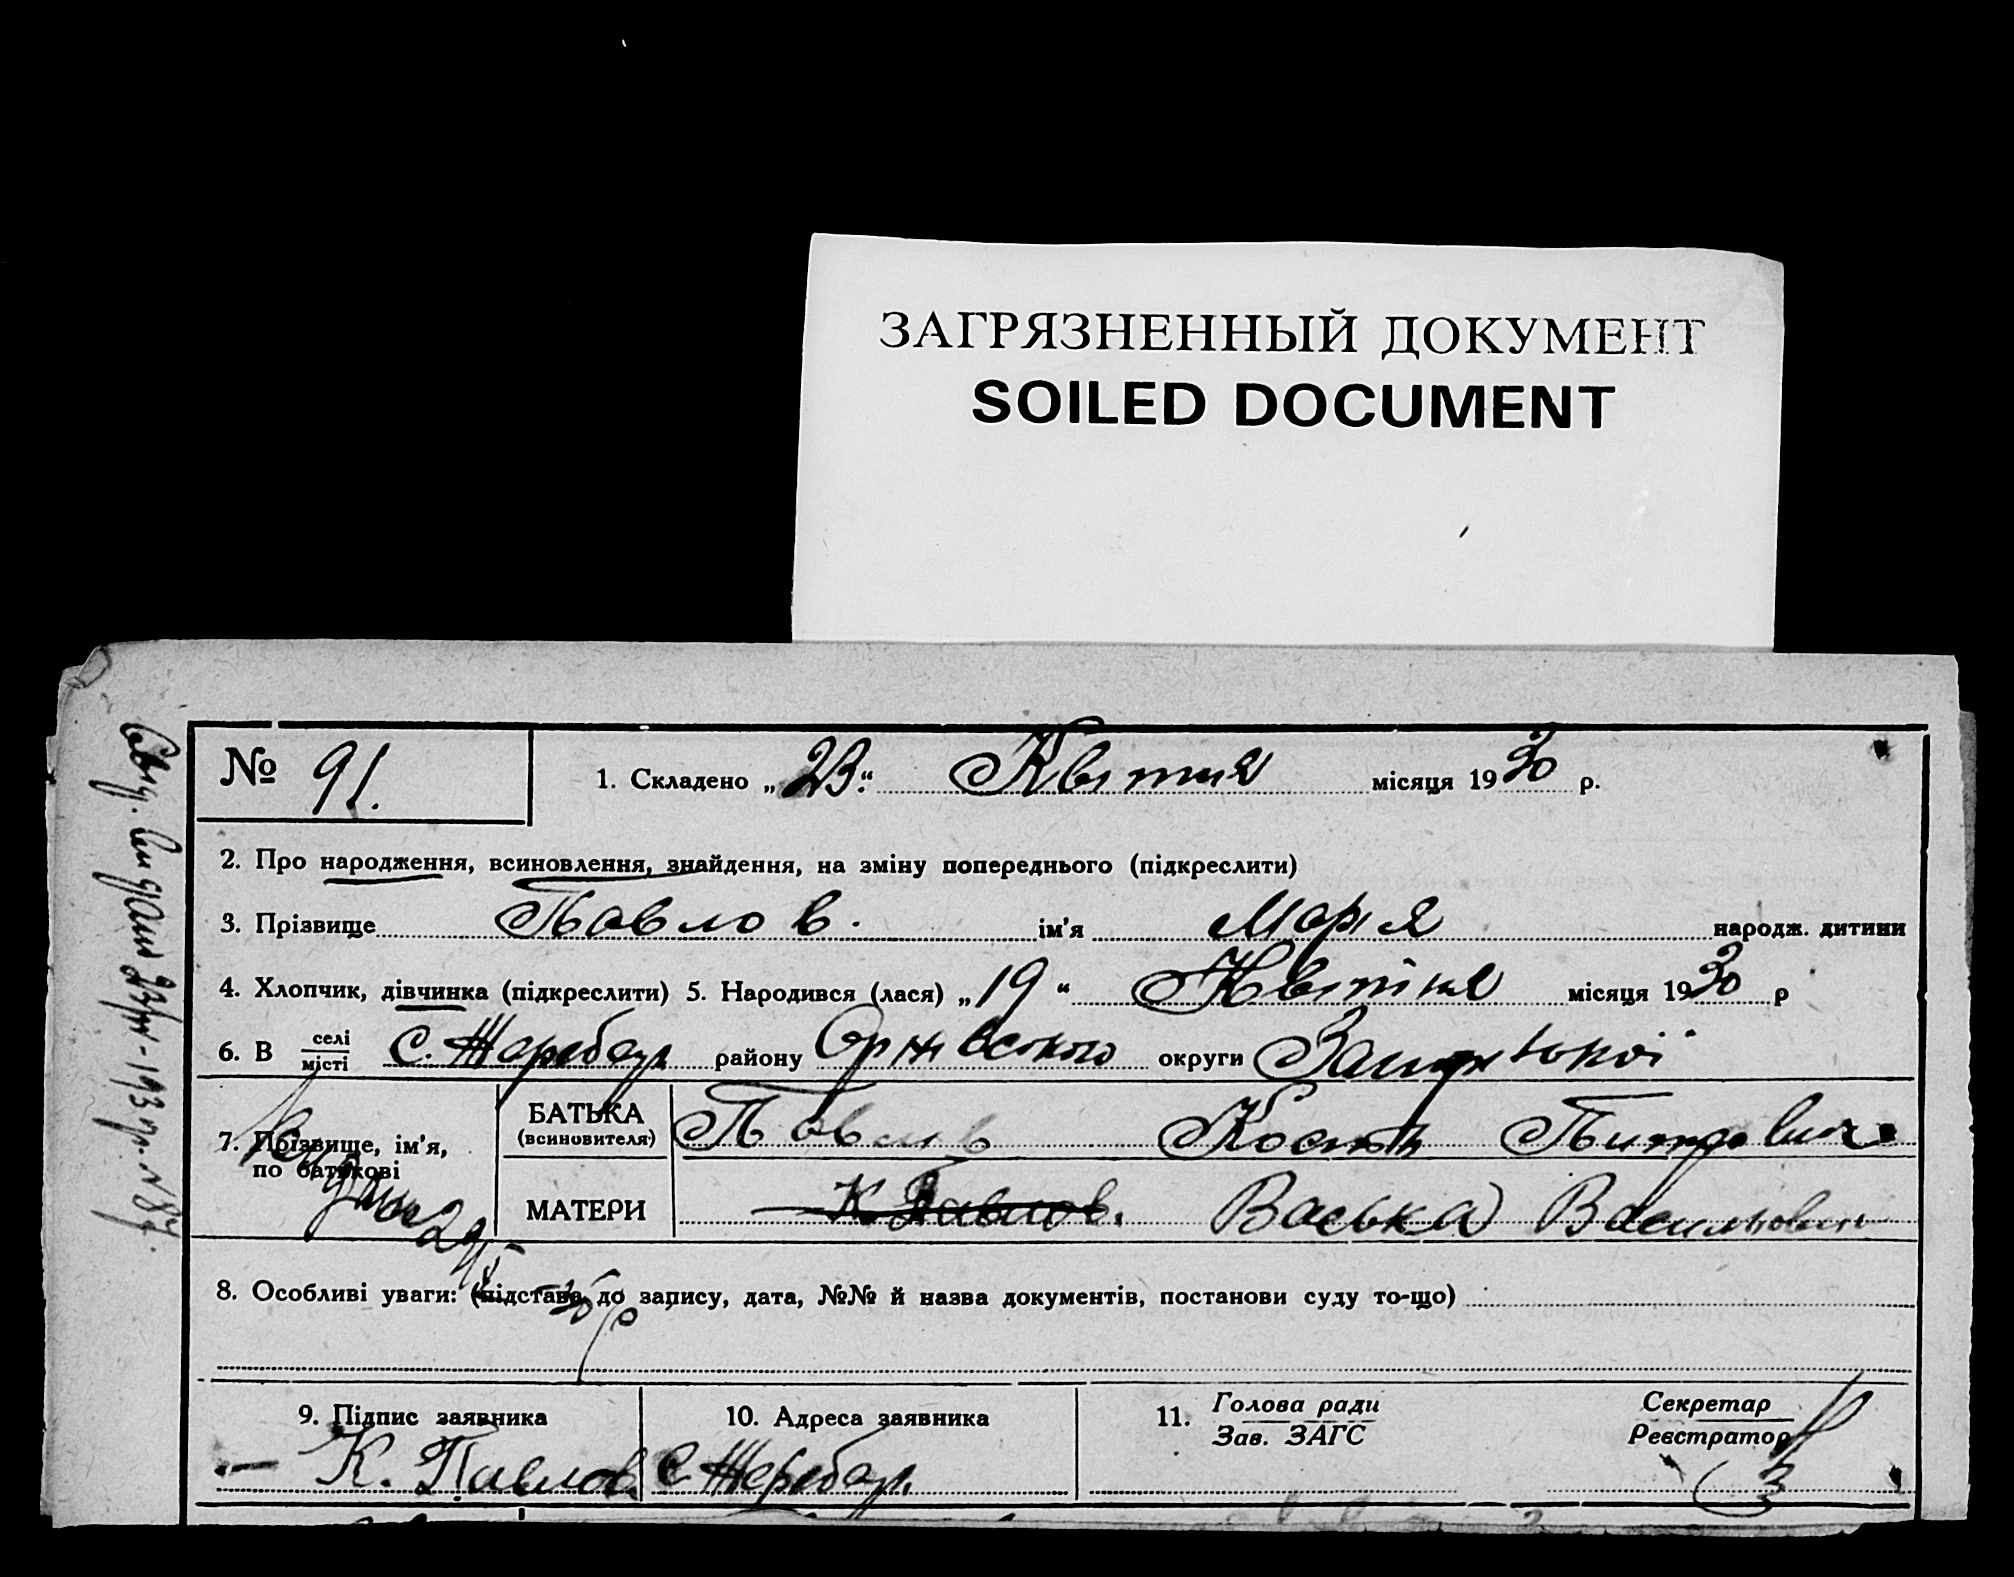 ЗАГРЯЗНЕННЫЙ ДОКУМЕНТ
SOILED DOCUMENT
№ 91.
1. Складено „23“ Квітня місяця 1930 р.
2. Про народження, всиновлення, знайдення, на зміну попереднього (підкреслити)
3. Прізвище Павлов. ім'я Марія народж. дитини
4. Хлопчик, дівчинка (підкреслити) 5. Народився (лася) „19“ Квітня місяця 1930 р
6. В селі місті С. Жеребец району округи
7. Прізвище, ім'я, по батькові
БАТЬКА (всиновителя) Павлов Костя
МАТЕРИ К. Павлов. Васька
8. Особливі уваги: (підстава до запису, дата, №№ й назва документів, постанови суду то-що)
9. Підпис заявника
К. Павлов
10. Адреса заявника
С. Жеребец
11. Голова ради
Зав. ЗАГС
Секретар
Реєстратор